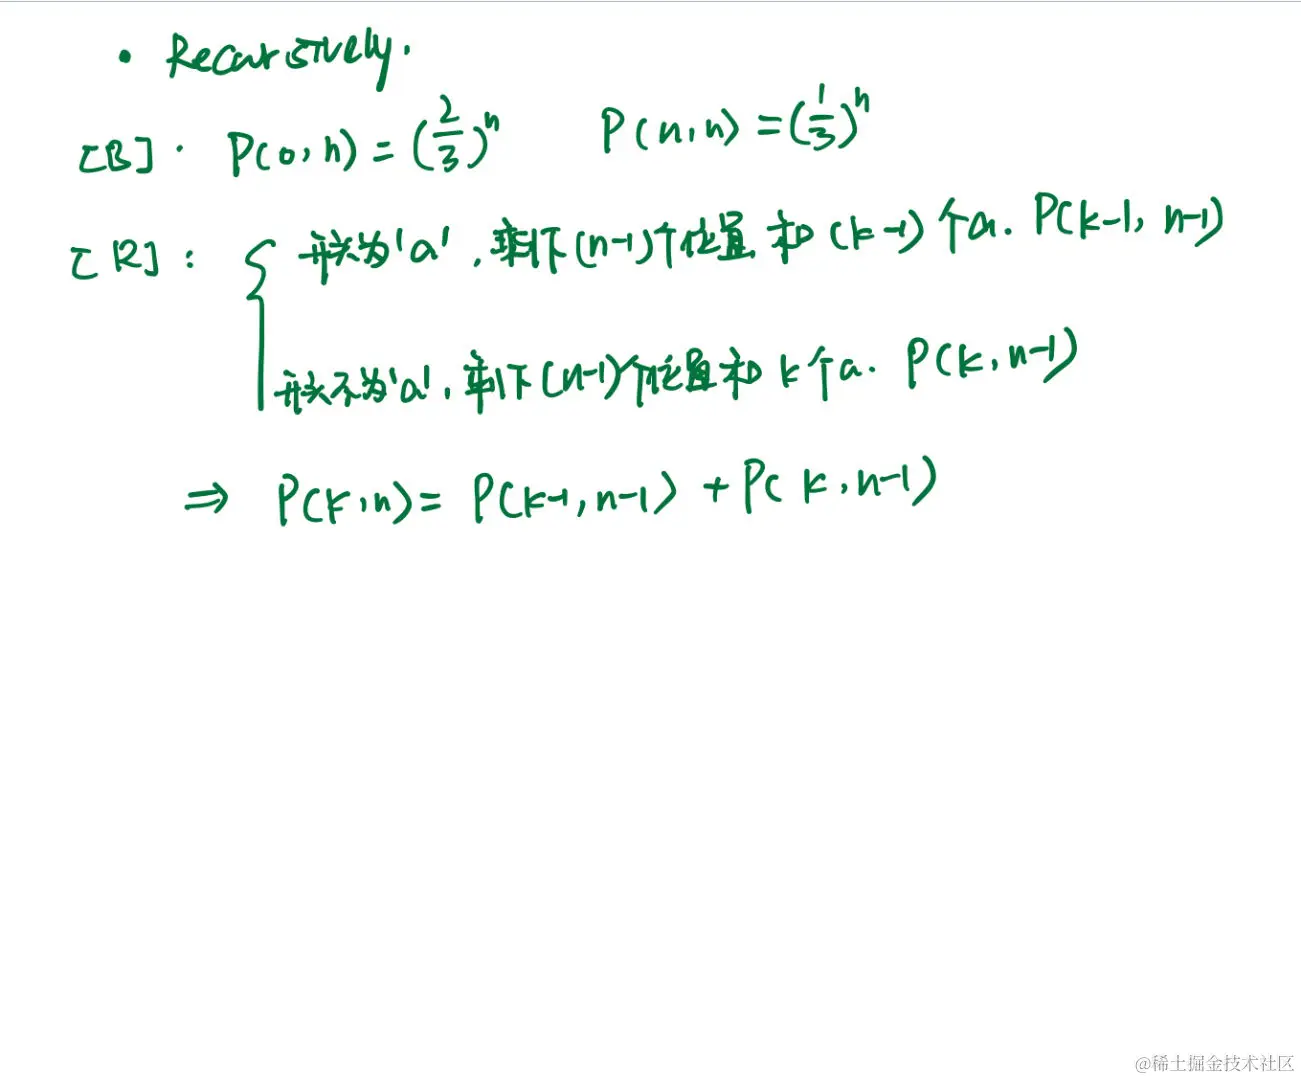 · Recursively.
[B]. P(0,n) = (2/3)^n P(n,n) = (1/3)^n
[R]: { 开头为'a', 剩下(n-1)个位置和(k-1)个a. P(k-1, n-1)
开头不为'a', 剩下(n-1)个位置和k个a. P(k,n-1)
⇒ P(k,n) = P(k-1,n-1) + P(k,n-1)
@稀土掘金技术社区